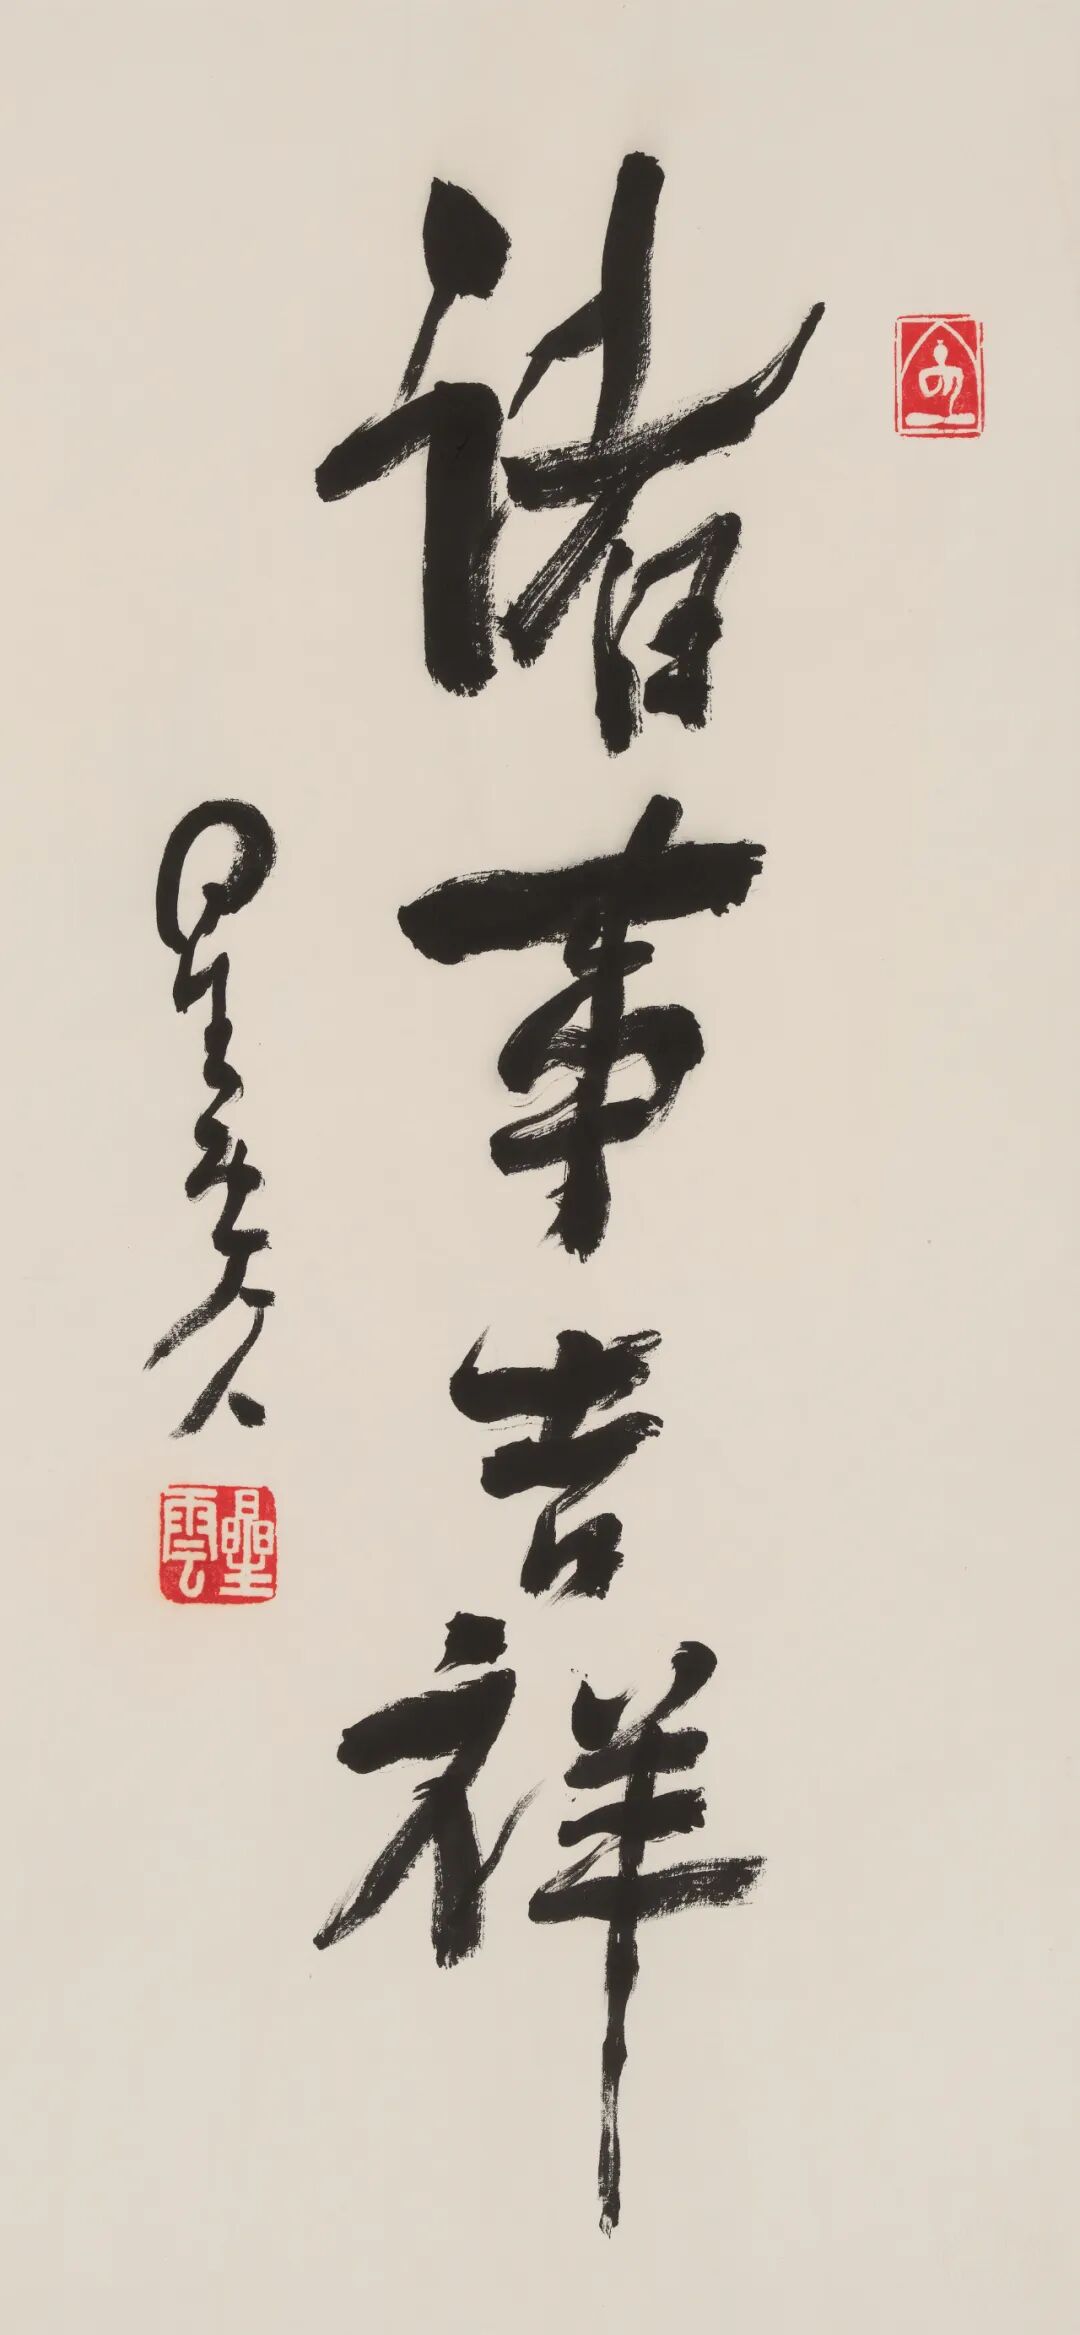 諸事吉祥
星
星雲